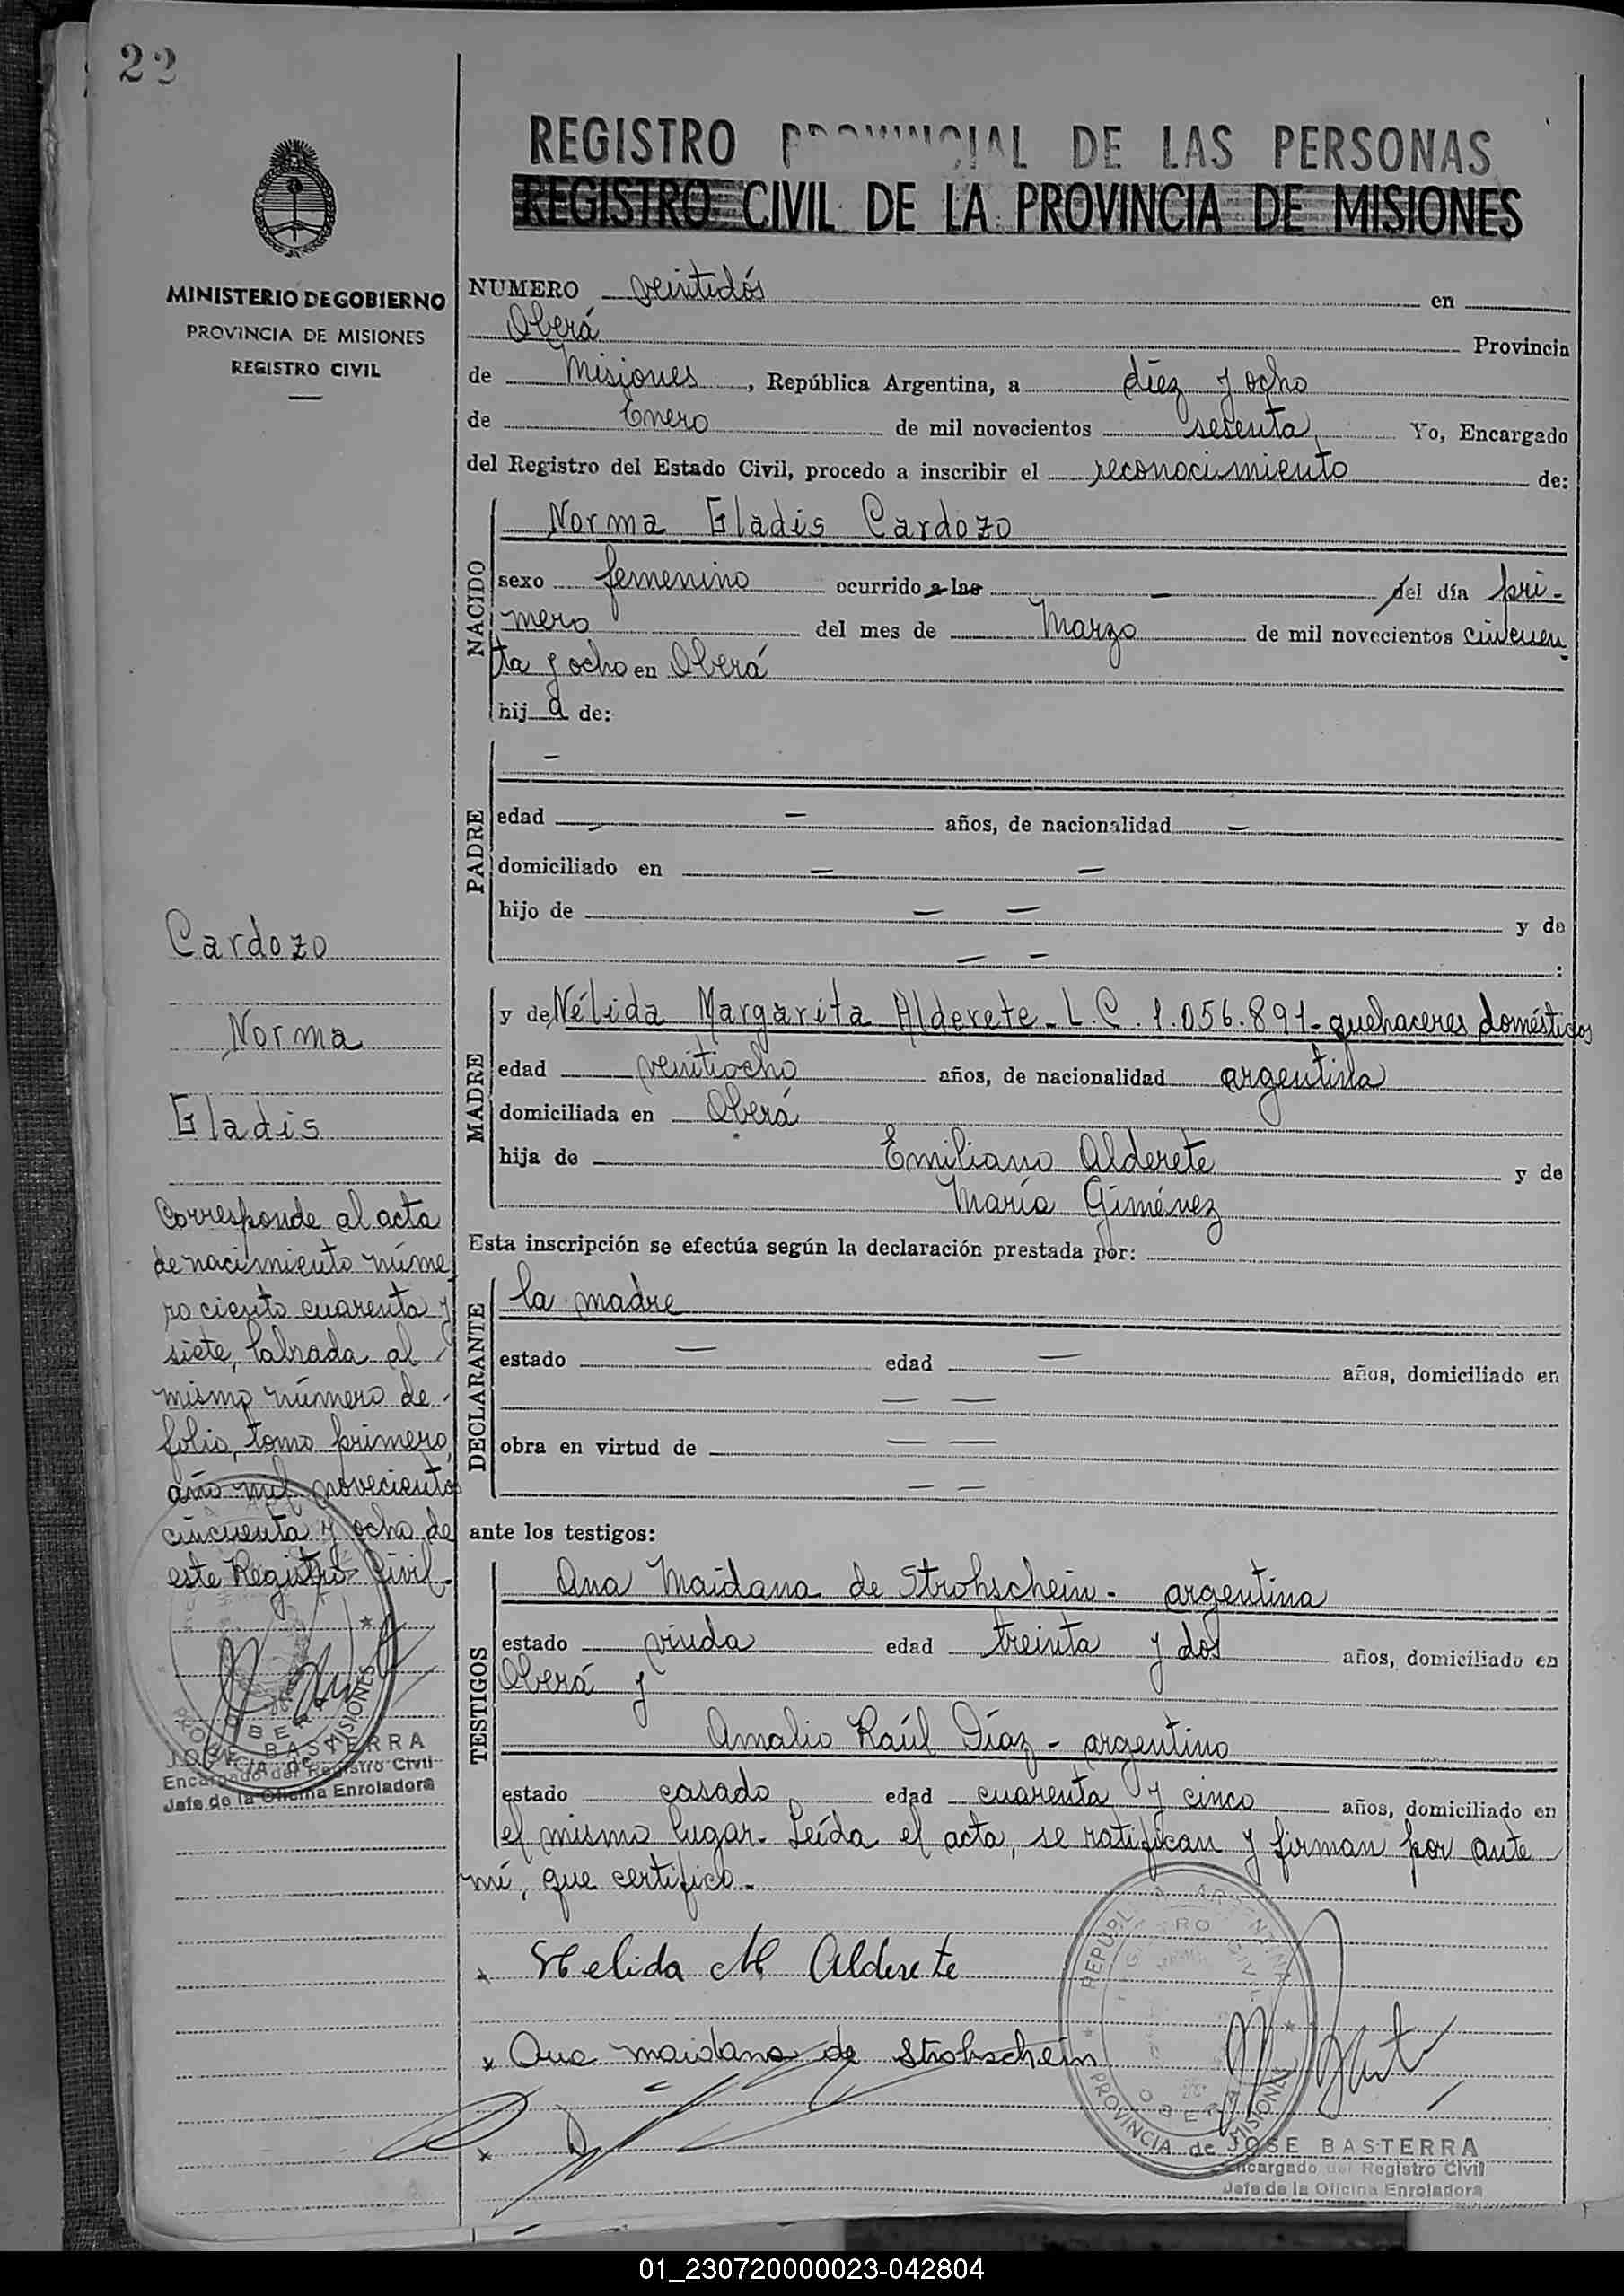 22
REGISTRO PROVINCIAL DE LAS PERSONAS
REGISTRO CIVIL DE LA PROVINCIA DE MISIONES
MINISTERIO DE GOBIERNO
PROVINCIA DE MISIONES
REGISTRO CIVIL
NUMERO veintidós en
Oberá Provincia
de Misiones, República Argentina, a diez y ocho
de Enero de mil novecientos sesenta, Yo, Encargado
del Registro del Estado Civil, procedo a inscribir el reconocimiento de:
NACIDO
Norma Gladis Cardozo
sexo femenino ocurrido a las — del día pri-
mero del mes de Marzo de mil novecientos cincuen
ta y ocho en Oberá
hij a de:
PADRE
—
edad — años, de nacionalidad —
domiciliado en — —
hijo de — — y de
— — :
MADRE
y de Nélida Margarita Alderete - L.C. 1.056.891 - quehaceres domésticos
edad veintiocho años, de nacionalidad argentina
domiciliada en Oberá
hija de Emiliano Alderete y de
María Giménez
Esta inscripción se efectúa según la declaración prestada por:
DECLARANTE
la madre
estado — edad — años, domiciliado en
— —
obra en virtud de — —
— —
ante los testigos:
TESTIGOS
Ana Maidana de Strohschein - argentina
estado viuda edad treinta y dos años, domiciliado en
Oberá y
Amalio Raúl Díaz - argentino
estado casado edad cuarenta y cinco años, domiciliado en
el mismo lugar. Leída el acta, se ratifican y firman por ante
mí, que certifico.
Nelida M Alderete
Ana maidana de Strohschein
REPUBLICA ARGENTINA
REGISTRO CIVIL
OBERA
PROVINCIA de MISIONES
JOSE BASTERRA
Encargado del Registro Civil
Jefe de la Oficina Enroladora
Cardozo
Norma
Gladis
Corresponde al acta
de nacimiento núme
ro ciento cuarenta y
siete, labrada al
mismo número de
folio, tomo primero,
año mil novecientos
cincuenta y ocho de
este Registro Civil.
OBERA
PROVINCIA de MISIONES
JOSE BASTERRA
Encargado del Registro Civil
Jefe de la Oficina Enroladora
01_230720000023-042804